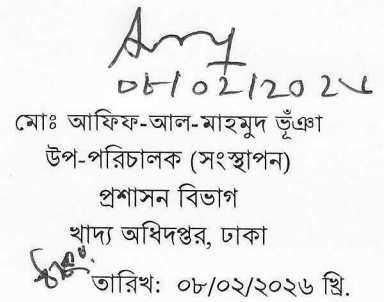 ০৮/০২/২০২৬
মোঃ আফিফ-আল-মাহমুদ ভূঁঞা
উপ-পরিচালক (সংস্থাপন)
প্রশাসন বিভাগ
খাদ্য অধিদপ্তর, ঢাকা
তারিখ: ০৮/০২/২০২৬ খ্রি.